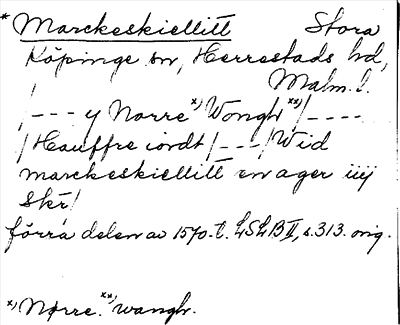 * Marckeskiellitt Stora
Köpinge sn, Herrestads hd,
Malm. l.
/--- y Norre *) Wongh **)/----
/Hauffre iordt/---/Wid
marckeskiellitt en ager iiij
skr/
förra delen av 1570-t. LSLB II, s. 313. orig.
*) Nørre. **) wangh.